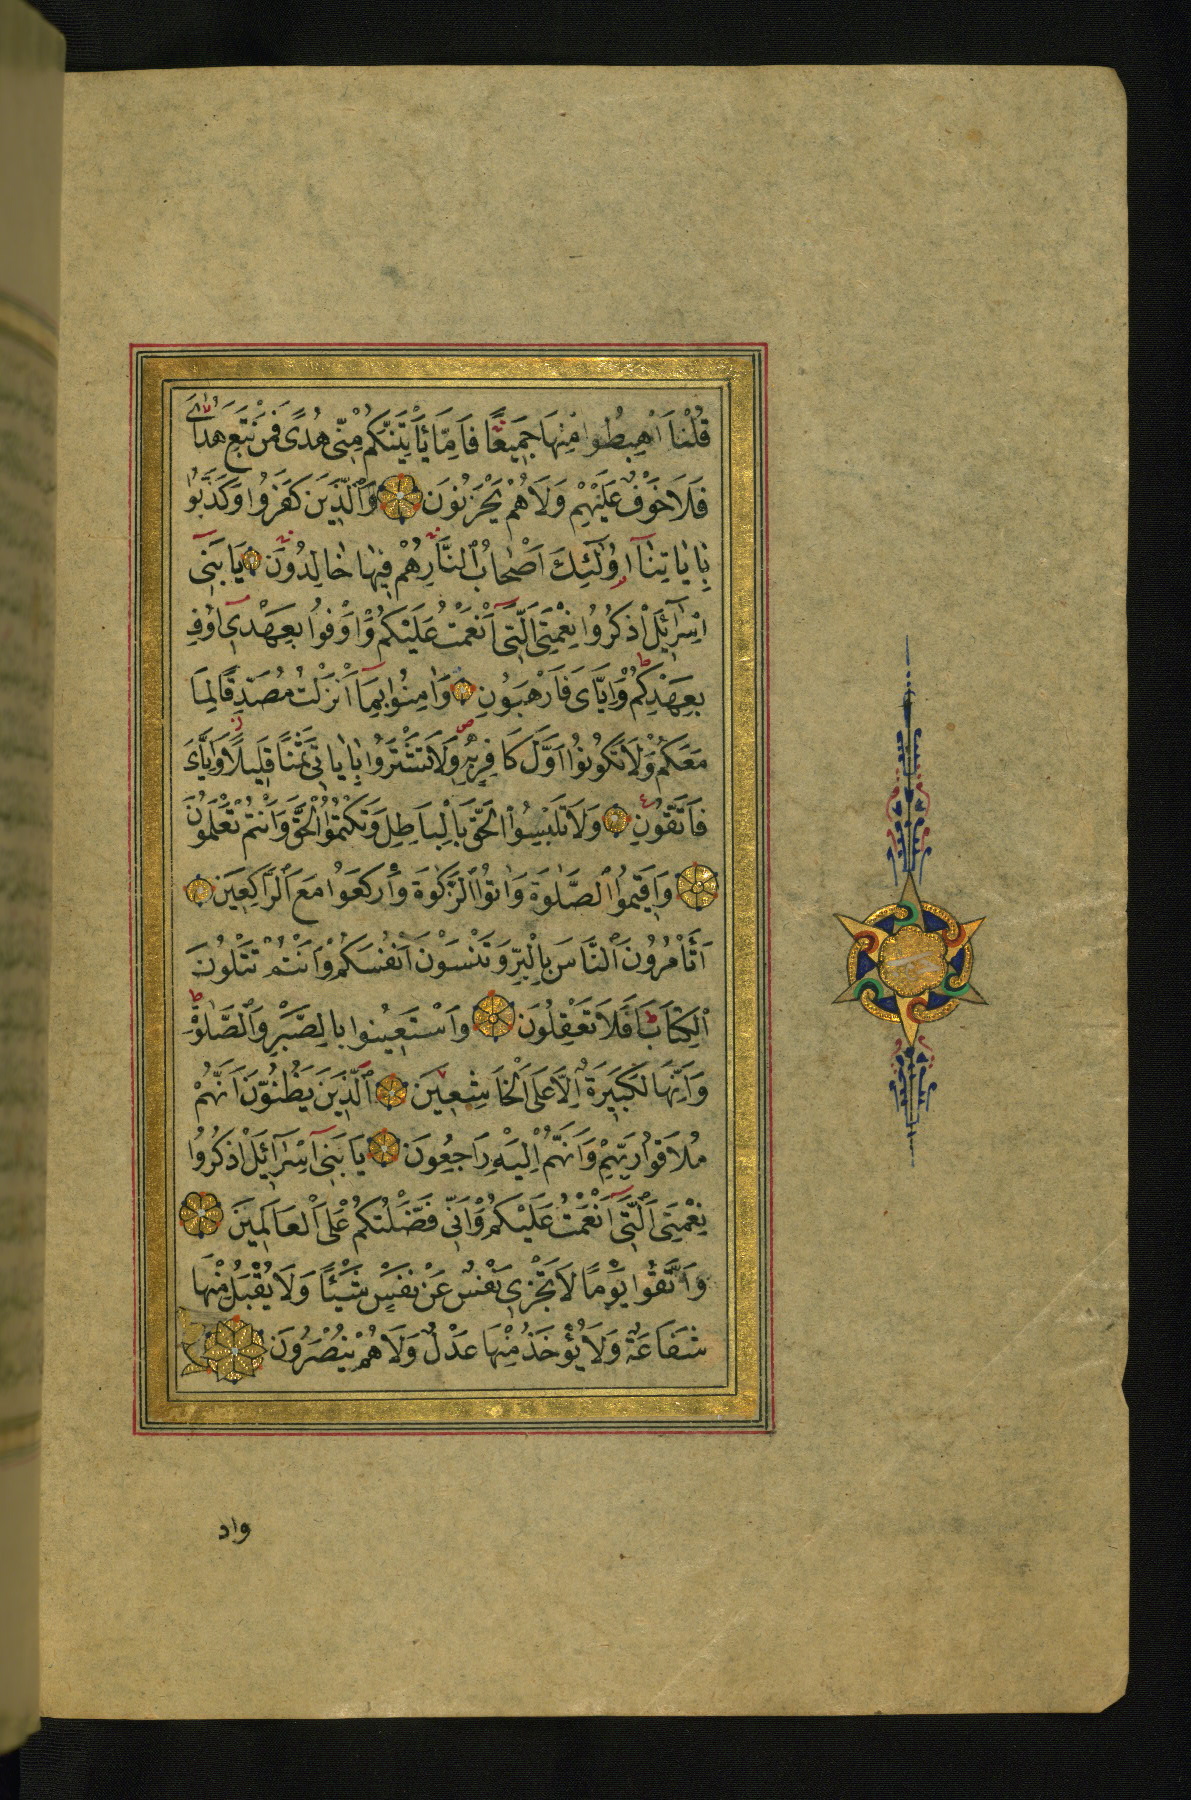 قُلْنَا اهْبِطُوا مِنْهَا جَمِيعًا فَاِمَّا يَأْتِيَنَّكُمْ مِنِّى هُدًى فَمَنْ تَبِعَ هُدَاىَ
فَلَا خَوْفٌ عَلَيْهِمْ وَلَا هُمْ يَحْزَنُونَ وَالَّذِينَ كَفَرُوا وَكَذَّبُوا
بِاٰيَاتِنَآ اُولٰٓئِكَ اَصْحَابُ النَّارِ هُمْ فِيهَا خَالِدُونَ يَا بَنِىٓ
اِسْرَآئِلَ اذْكُرُوا نِعْمَتِىَ الَّتِىٓ اَنْعَمْتُ عَلَيْكُمْ وَاَوْفُوا بِعَهْدِىٓ اُوفِ
بِعَهْدِكُمْ وَاِيَّاىَ فَارْهَبُونِ وَاٰمِنُوا بِمَآ اَنْزَلْتُ مُصَدِّقًا لِمَا
مَعَكُمْ وَلَا تَكُونُوا اَوَّلَ كَافِرٍ بِهِ وَلَا تَشْتَرُوا بِاٰيَاتِى ثَمَنًا قَلِيلًا وَاِيَّاىَ
فَاتَّقُونِ وَلَا تَلْبِسُوا الْحَقَّ بِالْبَاطِلِ وَتَكْتُمُوا الْحَقَّ وَاَنْتُمْ تَعْلَمُونَ
وَاَقِيمُوا الصَّلٰوةَ وَاٰتُوا الزَّكٰوةَ وَارْكَعُوا مَعَ الرَّاكِعِينَ
اَتَأْمُرُونَ النَّاسَ بِالْبِرِّ وَتَنْسَوْنَ اَنْفُسَكُمْ وَاَنْتُمْ تَتْلُونَ
الْكِتَابَ اَفَلَا تَعْقِلُونَ وَاسْتَعِينُوا بِالصَّبْرِ وَالصَّلٰوةِ
وَاِنَّهَا لَكَبِيرَةٌ اِلَّا عَلَى الْخَاشِعِينَ الَّذِينَ يَظُنُّونَ اَنَّهُمْ
مُلَاقُوا رَبِّهِمْ وَاَنَّهُمْ اِلَيْهِ رَاجِعُونَ يَا بَنِىٓ اِسْرَآئِلَ اذْكُرُوا
نِعْمَتِىَ الَّتِىٓ اَنْعَمْتُ عَلَيْكُمْ وَاَنِّى فَضَّلْتُكُمْ عَلَى الْعَالَمِينَ
وَاتَّقُوا يَوْمًا لَا تَجْزِى نَفْسٌ عَنْ نَفْسٍ شَيْئًا وَلَا يُقْبَلُ مِنْهَا
شَفَاعَةٌ وَلَا يُؤْخَذُ مِنْهَا عَدْلٌ وَلَا هُمْ يُنْصَرُونَ
واد